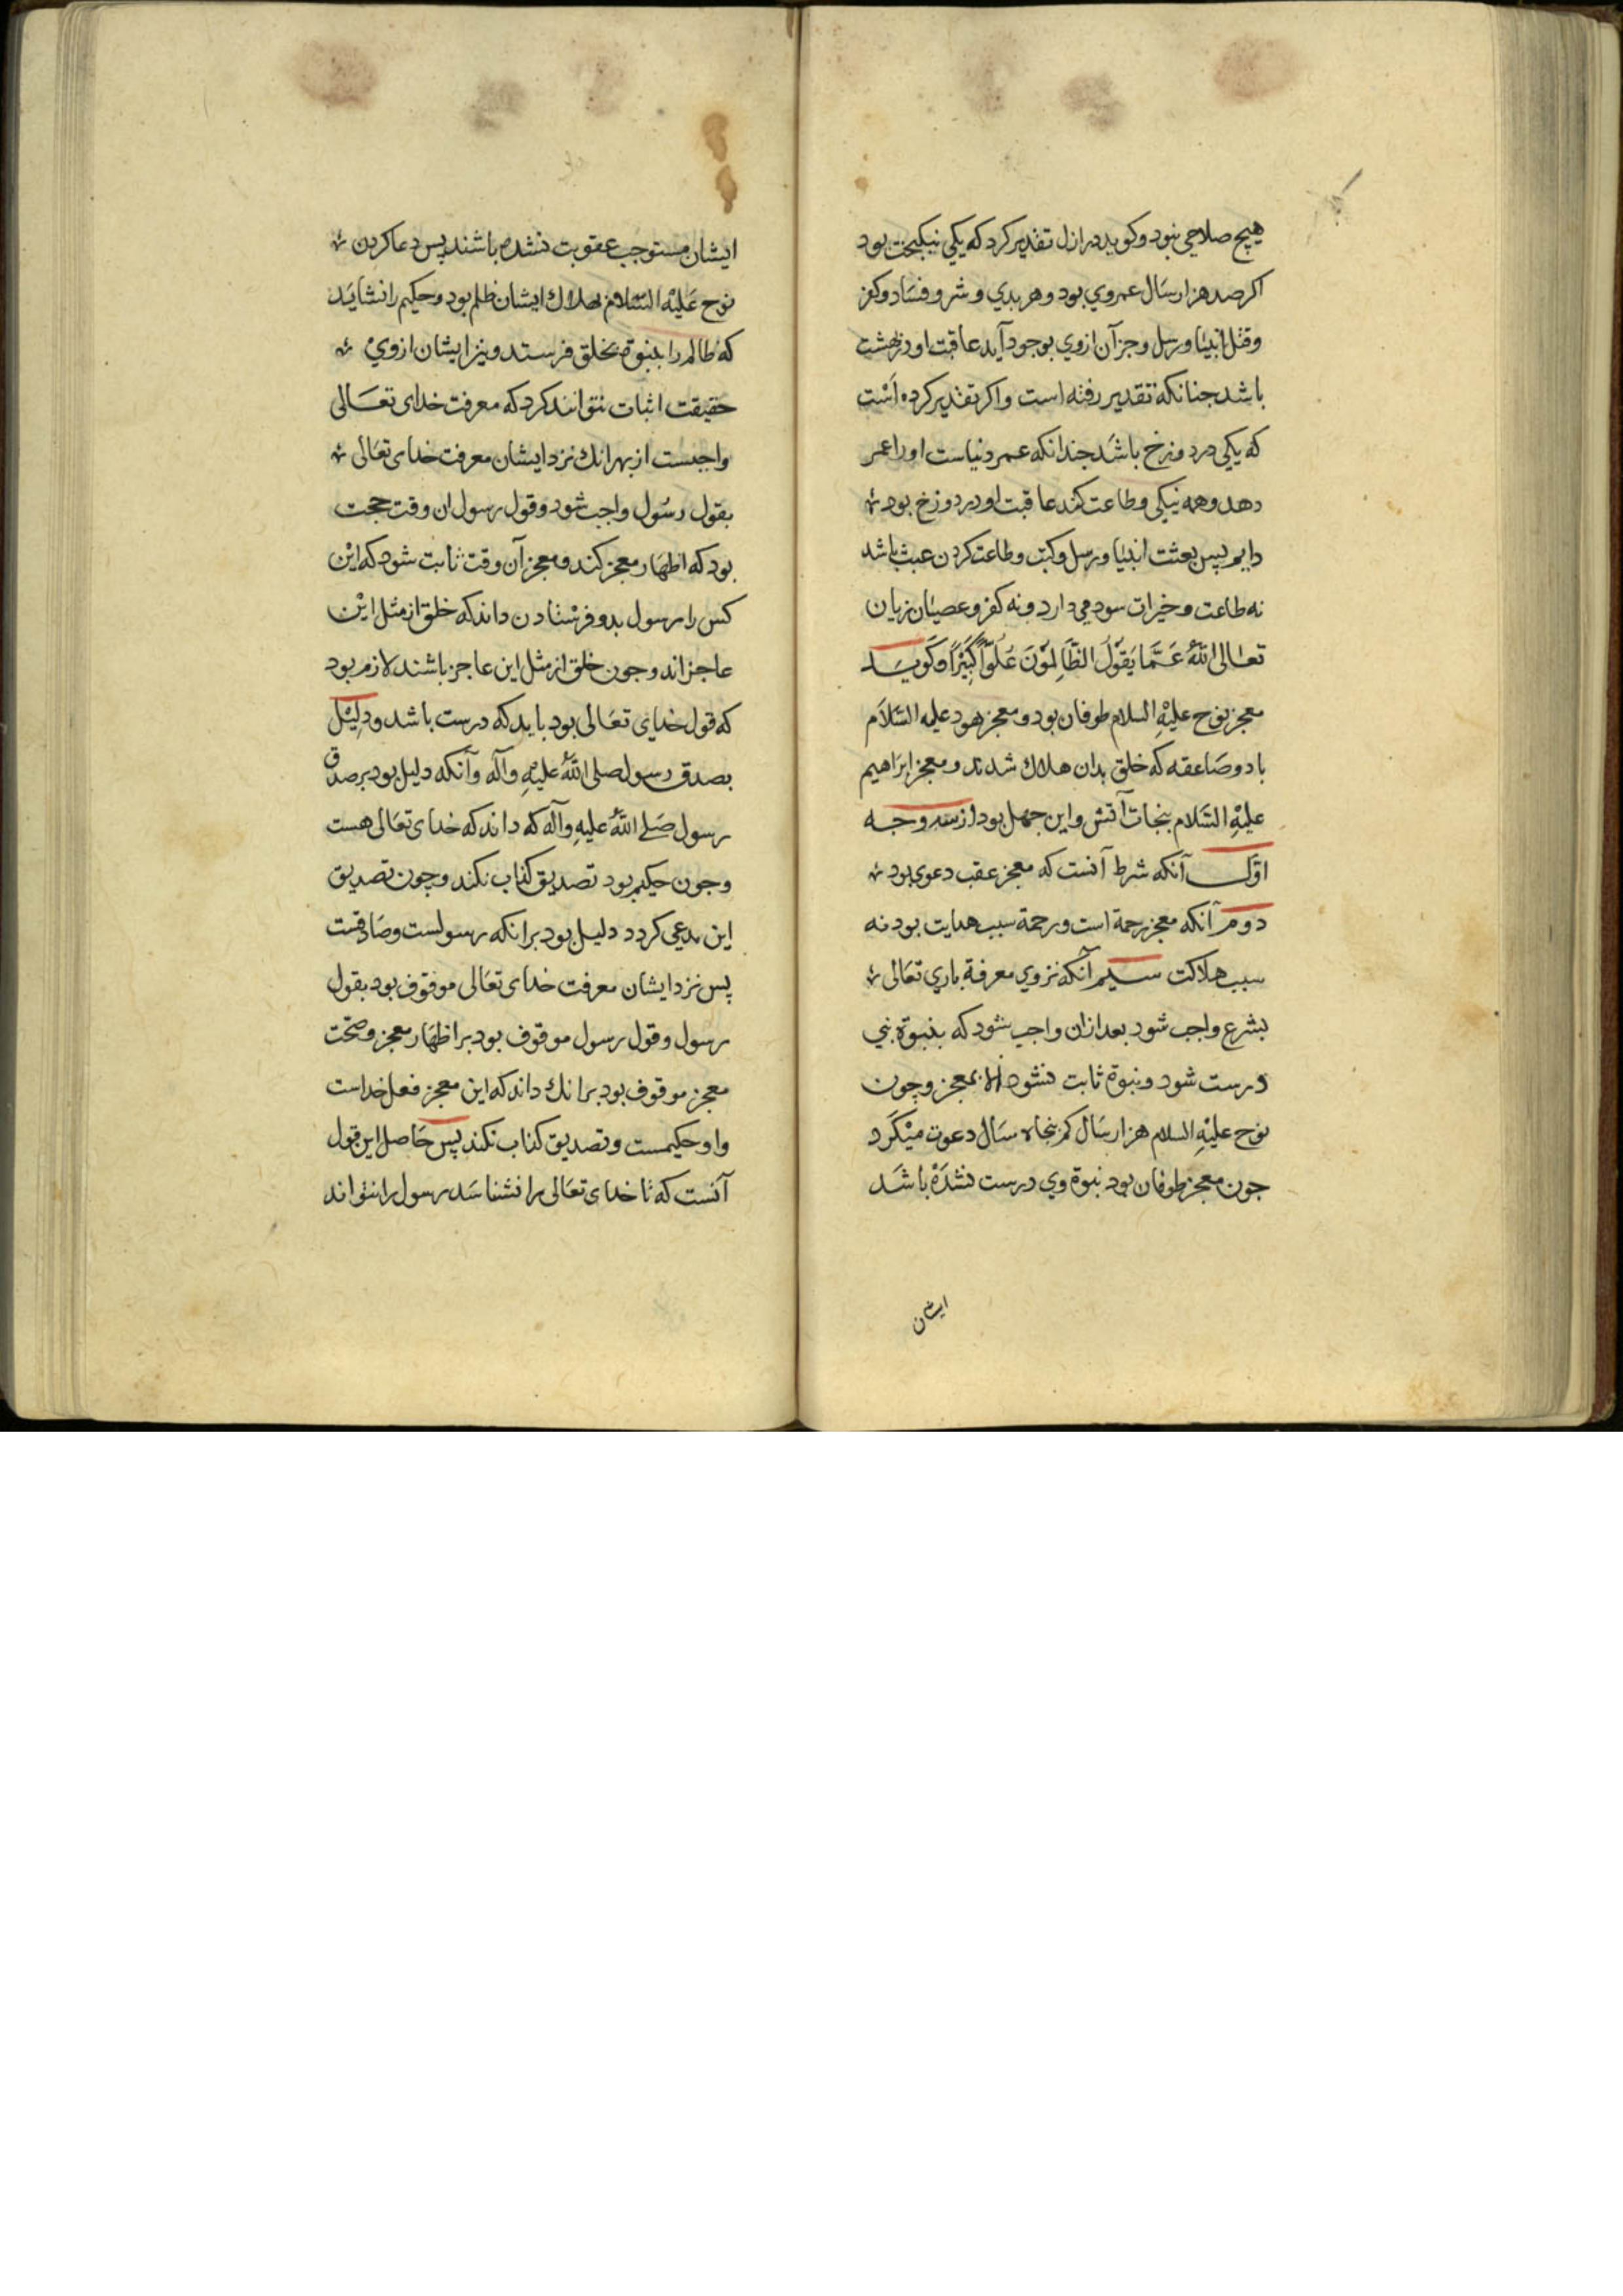 هیچ صلاحی نبود و کوید در ازل تقدیر کرد که یکی نیکبخت بود
اکر صد هزار سال عمر وی بود و هر بدی و شر و فساد و کفر
و قتل انبیا و رسل و جز آن از وی بوجود آید عاقبت او در بهشت
باشد جنانکه تقدیر رفته است و اکر تقدیر کرده است
که یکی در دوزخ باشد جندانکه عمر دنیاست او را عمر
دهد و همه نیکی و طاعت کند عاقبت او در دوزخ بود
دایم پس بعثت انبیا و رسل و کتب و طاعت کردن عبث باشد
نه طاعت و خیرات سود می دارد و نه کفر و عصیان زیان
تعالی اللهُ عَمَّا یَقُوْلُ الظَّالِمُوْنَ عُلُوّاً کَبِیْراً و کویَد
معجز نوح علیْهِ السلام طوفان بود و معجز هود علیه السّلام
باد و صاعقه که خلق بدان هلاك شدند و معجز ابراهیم
علیْهِ السّلام نجات آتش و این جهل بود از سه وجه
اوّل آنکه شرط آنست که معجز عقب دعوی بود
دوم آنکه معجز رحمة است و رحمة سبب هدایت بود نه
سبب هلاکت سیم آنکه نزد وی معرفة باری تعالی
بشرع واجب شود بعد ازان واجب شود که بنبوة نبی
درست شود و نبوة ثابت نشود الا بمعجز و چون
نوح علیْهِ السلام هزار سال کم پنجاه سال دعوت میْکَرد
جون معجز طوفان بود نبوة وی درست نشدَهْ باشَد
ایشان
ایشان مستوجب عقوبت نشده باشند پس دعا کردن
نوح عَلیْهِ السّلام بهلاك ایشان ظلم بود و حکیم را نشایَد
که ظالم را بنبوة بخلق فرستد و نیز ایشان از وی
حقیقت اثبات نتوانند کرد که معرفت خدای تعالی
واجبست از بهر انك نزد ایشان معرفت خدای تعالی
بقول رسُول واجب شود و قول رسول ان وقت حجت
بود که اظهار معجز کند و معجز آن وقت ثابت شود که ایْن
کس را رسول بدو فرستادن داند که خلق از مثل ایْن
عاجزاند و جون خلق از مثل این عاجز باشند لازم بود
که قول خدای تعالی بود باید که درست باشد و دلِیْل
بصدق رسول صلی اللهُ علیهِ وآله وآنکه دلیل بود بر صدق
رسول صلی اللهُ علیهِ وآله که داند که خدای تعالی هست
و جون حکیم بود تصدیق کذاب نکند و چون تصدیق
این مدعی کردد دلیل بود برانکه رسولست و صادقست
پس نزد ایشان معرفت خدای تعالی موقوف بود بقول
رسول و قول رسول موقوف بود بر اظهار معجز و صحّت
معجز موقوف بود برانك داند که این معجز فعل خداست
و او حکیمست و تصدیق کذاب نکند پس حَاصل این قول
آنست که تا خدای تعالی را نشناسَد رسول را نتواند